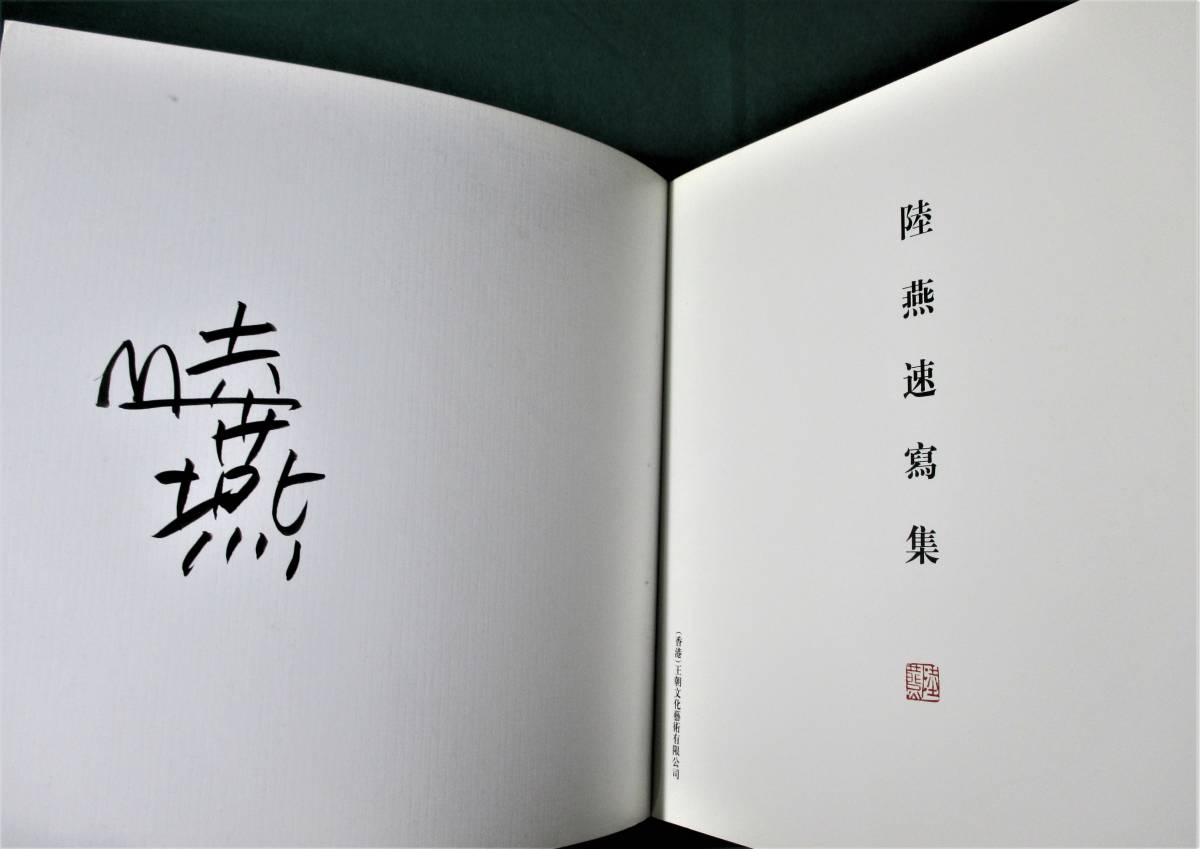 陸燕
陸燕速寫集
陸燕
（香港）王朝文化藝術有限公司